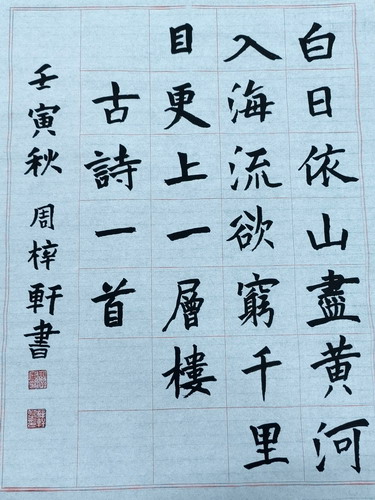 白日依山盡黄河
入海流欲窮千里
目更上一層樓
古詩一首
壬寅秋 周梓軒書